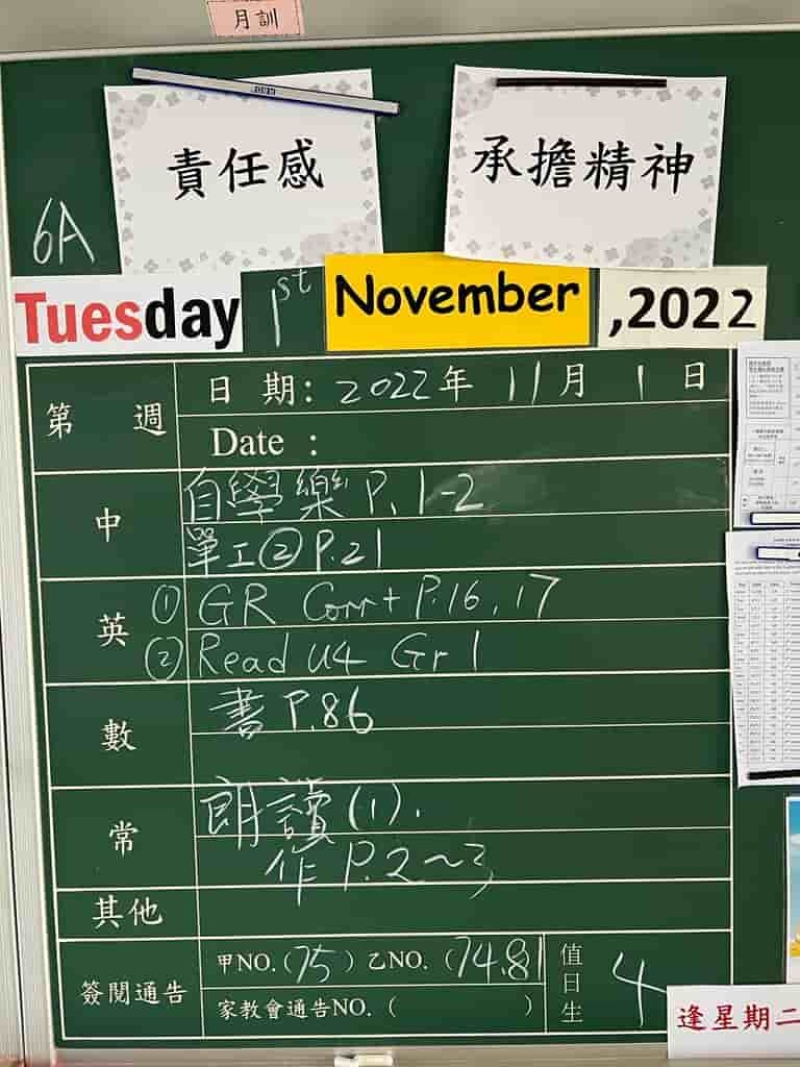 月訓
責任感
承擔精神
6A
Tuesday 1st November ,2022
第 週
日 期: 2022年 11月 1 日
Date :
中
自學樂 P. 1-2
單工② P.21
英
① GR Corr + P.16, 17
② Read U4 Gr 1
數
書 P.86
常
朗讀 (1).
作 P.2~3
其他
簽閱通告
甲NO.(75) 乙NO. (74.81
家教會通告NO. ( )
值日生
4
逢星期二